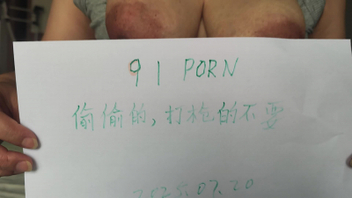 91 PORN
偷偷的,打枪的不要
2025.07.20